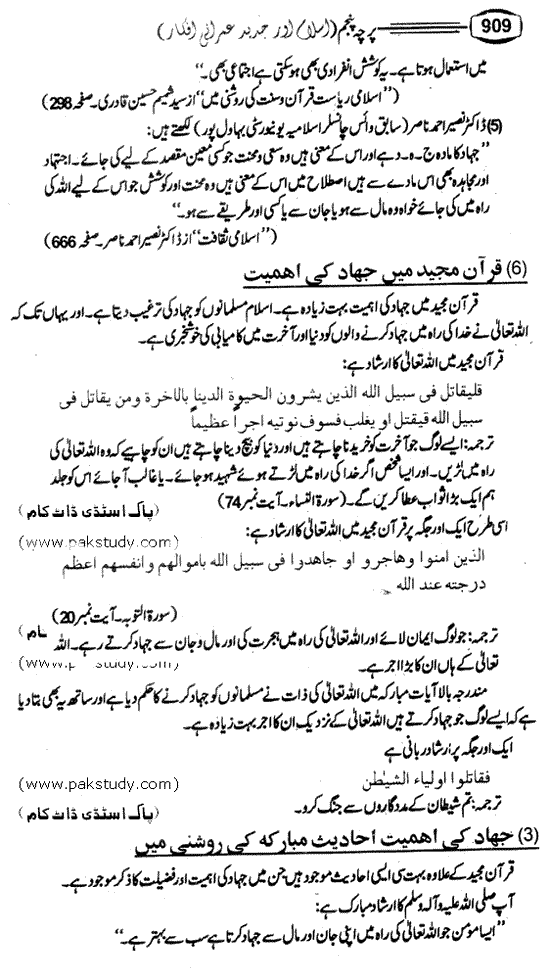 909 پرچہ پنجم (اسلام اور جدید عمرانی افکار)
میں استعمال ہوتا ہے۔ یہ کوشش انفرادی بھی ہو سکتی ہے اجتماعی بھی۔"
("اسلامی ریاست قرآن و سنت کی روشنی میں" از سید شمیم حسین قادری۔ صفحہ 298)
(5) ڈاکٹر نصیر احمد ناصر (سابق وائس چانسلر اسلامیہ یونیورسٹی بہاول پور) لکھتے ہیں:
"جہاد کا مادہ ج۔ہ۔د ہے اور اس کے معنی ہیں وہ سعی و محنت جو کسی معین مقصد کے لیے کی جائے۔ اجتہاد
اور مجاہدہ بھی اس مادے سے ہیں اصطلاح میں اس کے معنی ہیں وہ محنت اور کوشش جو اس کے لیے اللہ کی
راہ میں کی جائے خواہ وہ مال سے ہو یا جان سے یا کسی اور طریقے سے ہو۔"
("اسلامی ثقافت" از ڈاکٹر نصیر احمد ناصر۔ صفحہ 666)
(6) قرآن مجید میں جهاد کی اهمیت
قرآن مجید میں جہاد کی اہمیت بہت زیادہ ہے۔ اسلام مسلمانوں کو جہاد کی ترغیب دیتا ہے۔ اور یہاں تک کہ
اللہ تعالیٰ نے خدا کی راہ میں جہاد کرنے والوں کو دنیا اور آخرت میں کامیابی کی خوشخبری ہے۔
قرآن مجید میں اللہ تعالیٰ کا ارشاد ہے:
فليقاتل فى سبيل الله الذين يشرون الحيوة الدينا بالاخرة ومن يقاتل فى
سبيل الله قيقتل او يغلب فسوف نوتيه اجراً عظيماً
ترجمہ: ایسے لوگ جو آخرت کو خریدنا چاہتے ہیں اور دنیا کو بیچ دینا چاہتے ہیں ان کو چاہیے کہ وہ اللہ تعالیٰ کی
راہ میں لڑیں۔ اور ایسا شخص اگر خدا کی راہ میں لڑتے ہوئے شہید ہو جائے۔ یا غالب آ جائے اس کو جلد
ہم ایک بڑا ثواب عطا کریں گے۔ (سورۃ النساء۔ آیت نمبر 74) (پاک اسٹڈی ڈاٹ کام)
اسی طرح ایک اور جگہ پر قرآن مجید میں اللہ تعالیٰ کا ارشاد ہے: (www.pakstudy.com)
الذين امنوا وهاجرو او جاهدوا فى سبيل الله باموالهم وانفسهم اعظم
درجته عند الله
(سورۃ التوبہ۔ آیت نمبر 20)
ترجمہ: جو لوگ ایمان لائے اور اللہ تعالیٰ کی راہ میں ہجرت کی اور مال و جان سے جہاد کرتے رہے۔ اللہ
تعالیٰ کے ہاں ان کا بڑا اجر ہے۔
مندرجہ بالا آیات مبارکہ میں اللہ تعالیٰ کی ذات نے مسلمانوں کو جہاد کرنے کا حکم دیا ہے اور ساتھ یہ بھی بتا دیا
ہے کہ ایسے لوگ جو جہاد کرتے ہیں اللہ تعالیٰ کے نزدیک ان کا اجر بہت زیادہ ہے۔
ایک اور جگہ پر ارشاد ربانی ہے
فقاتلوا اولياء الشيطٰن (www.pakstudy.com)
ترجمہ: تم شیطان کے مددگاروں سے جنگ کرو۔ (پاک اسٹڈی ڈاٹ کام)
(3) جهاد کی اهمیت احادیث مبارکه کی روشنی میں
قرآن مجید کے علاوہ بہت سی ایسی احادیث موجود ہیں جن میں جہاد کی اہمیت اور فضیلت کا ذکر موجود ہے۔
آپ صلی اللہ علیہ وآلہ وسلم کا ارشاد مبارک ہے:
"ایسا مؤمن جو اللہ تعالیٰ کی راہ میں اپنی جان اور مال سے جہاد کرتا ہے سب سے بہتر ہے۔"